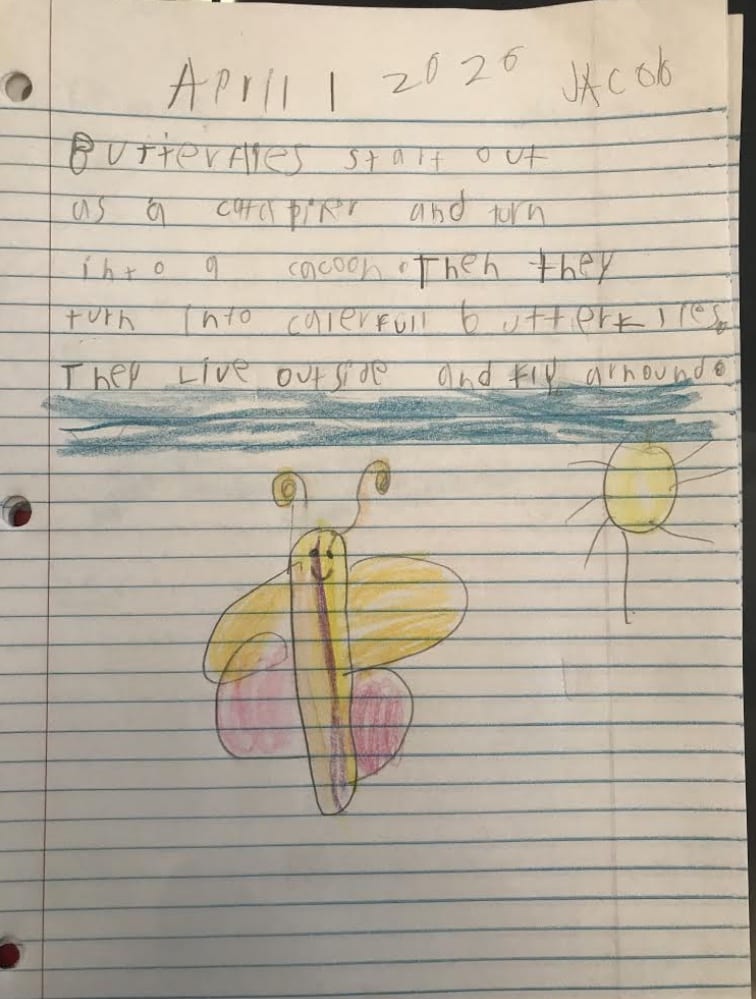 April 1 2020 JACob
Butterflies start out
as a catapiler and turn
into a cacoon. Then they
turn into calerfull butterflies.
They Live outside and fly arnound.